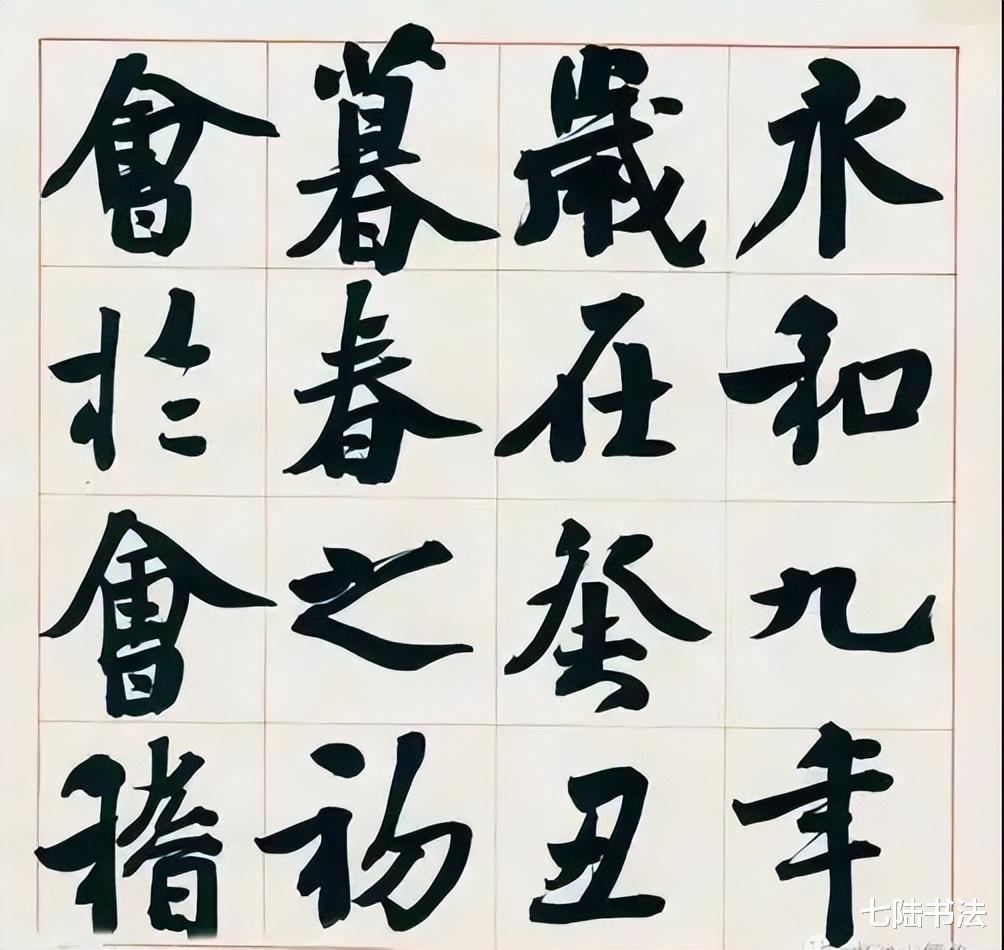 永和九年
歲在癸丑
暮春之初
會於會稽
七陆书法